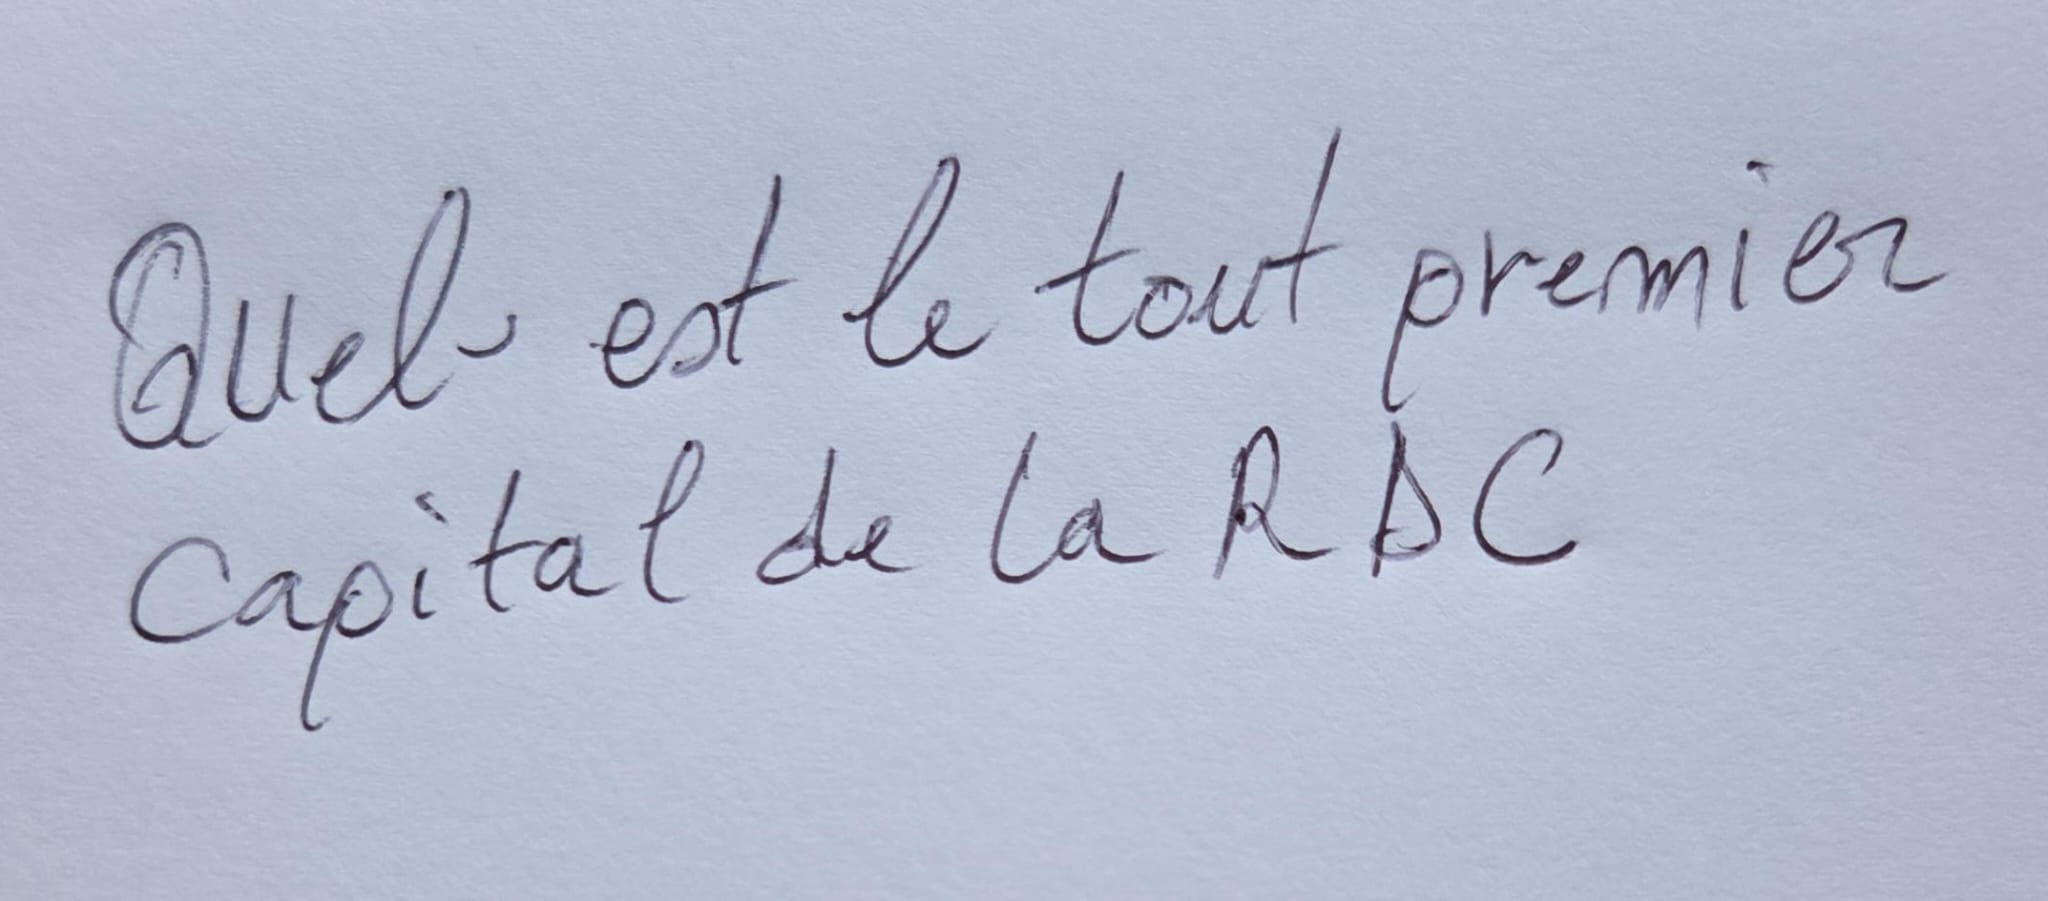 Quel est le tout premier
capital de la RDC